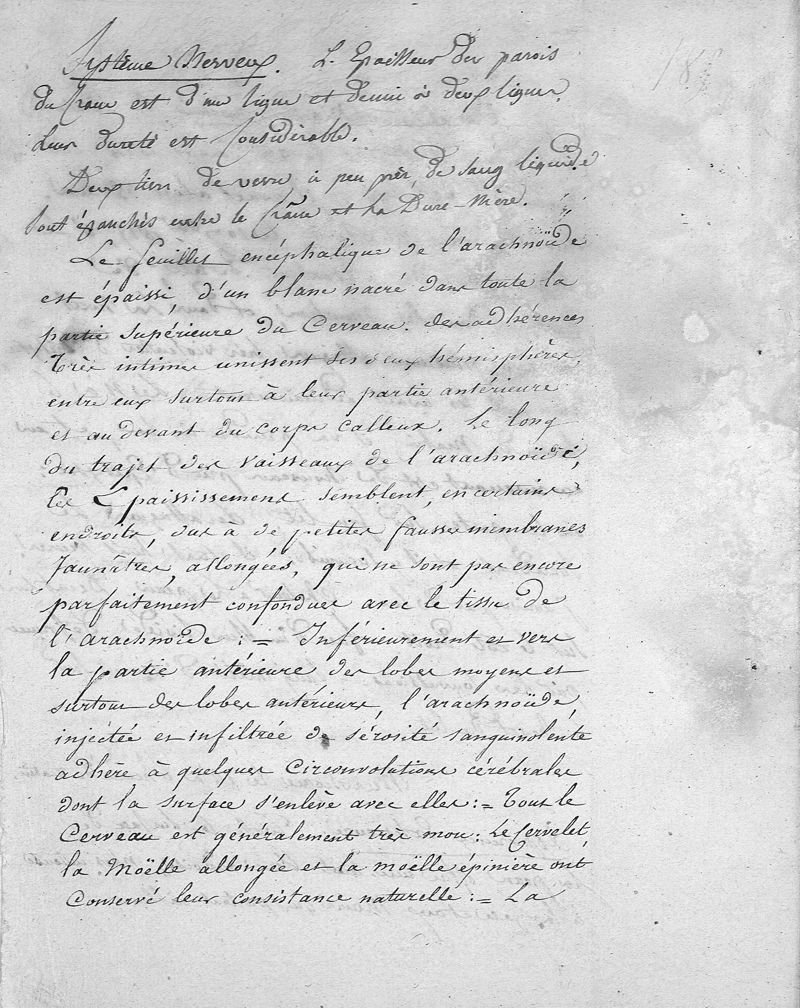 Système Nerveux. L'Epaisseur des parois
du Crâne est d'une ligne et demie à deux lignes.
Leur dureté est Considérable.
Deux tiers de verre à peu près de sang liquide
sont épanchés entre le Crâne et la Dure-Mère.
Le feuillet encéphalique de l'arachnoïde
est épaissi, d'un blanc nacré dans toute la
partie supérieure du Cerveau. des adhérences
très intimes unissent les deux hémisphères,
entre eux surtout à leur partie antérieure
et au devant du corps calleux. Le long
du trajet des vaisseaux de l'arachnoïde,
les Epaississemens semblent, en certains
endroits, dus à de petites fausses membranes
Jaunâtres, allongées, qui ne sont pas encore
parfaitement confondues avec le tissu de
l'arachnoïde : = Inférieurement et vers
la partie antérieure des lobes moyens et
surtout des lobes antérieurs, l'arachnoïde,
injectée et infiltrée de sérosité sanguinolente
adhère à quelques circonvolutions cérébrales
dont la surface s'enlève avec elles : = Tout le
Cerveau est généralement très mou : Le Cervelet,
la Moëlle allongée et la moëlle épinière ont
Conservé leur consistance naturelle : = La